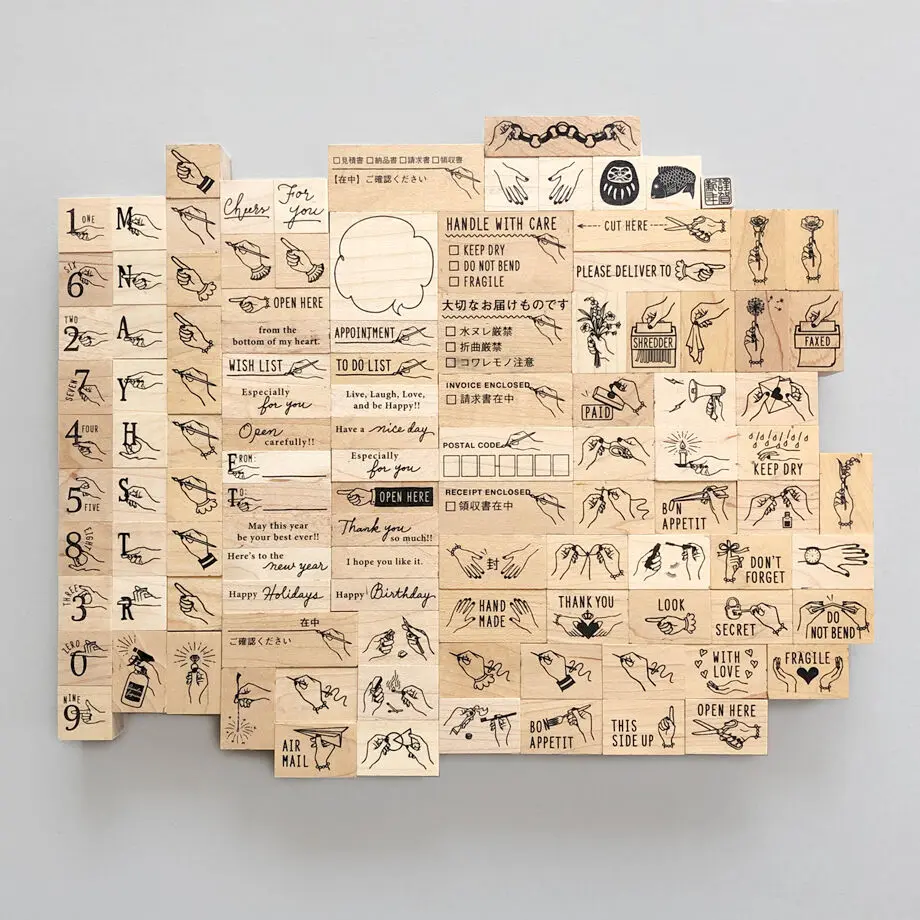 □見積書 □納品書 □請求書 □領収書
【在中】ご確認ください
謹賀
新年
Cheers
For
you
1 ONE
M
HANDLE WITH CARE
□ KEEP DRY
□ DO NOT BEND
□ FRAGILE
CUT HERE
PLEASE DELIVER TO
SIX
6
N
OPEN HERE
大切なお届けものです
□ 水ヌレ厳禁
□ 折曲厳禁
□ コワレモノ注意
SHREDDER
FAXED
TWO
2
A
from the
bottom of my heart.
APPOINTMENT
WISH LIST
TO DO LIST
SEVEN
7
Y
Especially
for you
Live, Laugh, Love,
and be Happy!!
INVOICE ENCLOSED
□ 請求書在中
PAID
4 FOUR
H
Open
carefully!!
Have a nice day
POSTAL CODE
KEEP DRY
FROM:
Especially
for you
5
FIVE
S
TO:
OPEN HERE
RECEIPT ENCLOSED
□ 領収書在中
BON
APPETIT
8
EIGHT
T
May this year
be your best ever!!
Thank you
so much!!
Here's to the
new year
I hope you like it.
封
DON'T
FORGET
THREE
3
R
Happy Holidays
Happy Birthday
HAND
MADE
THANK YOU
LOOK
SECRET
DO
NOT BEND
ZERO
0
在中
ご確認ください
WITH
LOVE
FRAGILE
NINE
9
AIR
MAIL
BON
APPETIT
THIS
SIDE UP
OPEN HERE